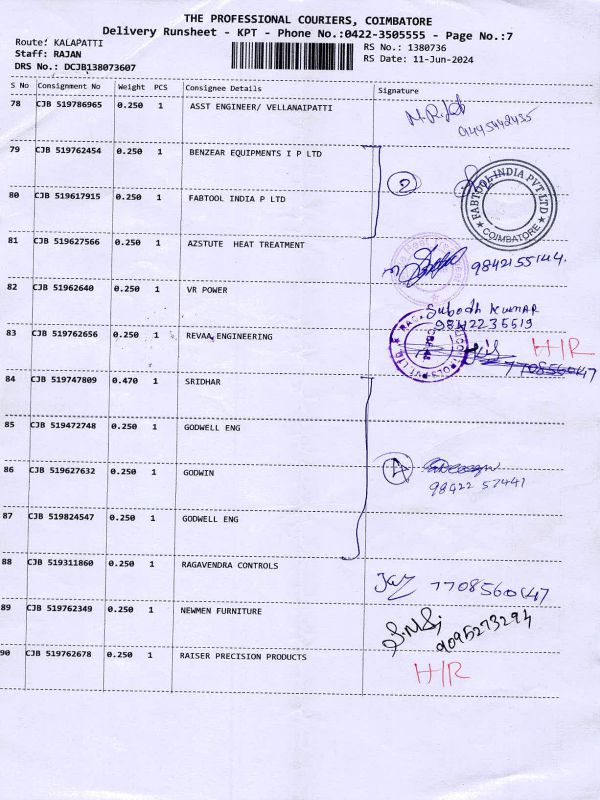 THE PROFESSIONAL COURIERS, COIMBATORE
Delivery Runsheet - KPT - Phone No.:0422-3505555 - Page No.:7
Route: KALAPATTI
Staff: RAJAN
DRS No.: DCJB138073607
RS No.: 1380736
RS Date: 11-Jun-2024
S No Consignment No Weight PCS Consignee Details Signature
78 CJB 519786965 0.250 1 ASST ENGINEER/ VELLANAIPATTI
9445442435
79 CJB 519762454 0.250 1 BENZEAR EQUIPMENTS I P LTD
2
FABTOOL INDIA PVT.LTD
★ COIMBATORE ★
80 CJB 519617915 0.250 1 FABTOOL INDIA P LTD
81 CJB 519627566 0.250 1 AZSTUTE HEAT TREATMENT
9842155144.
82 CJB 51962640 0.250 1 VR POWER
Subodh Kumar
9842235519
83 CJB 519762656 0.250 1 REVAA ENGINEERING
H/R
7708560147
84 CJB 519747809 0.470 1 SRIDHAR
85 CJB 519472748 0.250 1 GODWELL ENG
86 CJB 519627632 0.250 1 GODWIN
4
98422 57441
87 CJB 519824547 0.250 1 GODWELL ENG
88 CJB 519311860 0.250 1 RAGAVENDRA CONTROLS
Jay 7708560147
89 CJB 519762349 0.250 1 NEWMEN FURNITURE
9095273294
90 CJB 519762678 0.250 1 RAISER PRECISION PRODUCTS
H/R